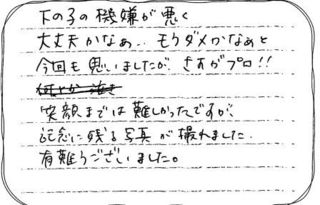 下の子の機嫌が悪く
大丈夫かなぁ... もうダメかなぁと
今回も思いましたが、さすがプロ!!
笑顔までは難しかったですが、
記念に残る写真が撮れました。
有難うございました。